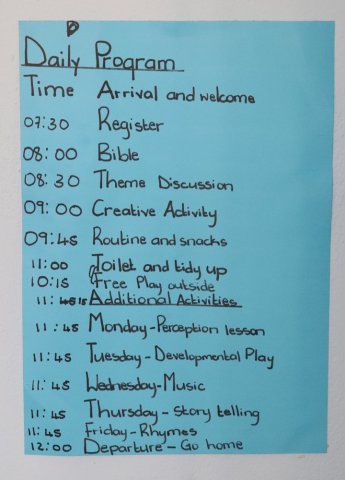 Daily Program
Time Arrival and welcome
07:30 Register
08:00 Bible
08:30 Theme Discussion
09:00 Creative Activity
09:45 Routine and snacks
11:00 Toilet and tidy up
10:15 Free Play outside
11: Additional Activities
11:45 Monday-Perception lesson
11:45 Tuesday-Developmental Play
11:45 Wednesday-Music
11:45 Thursday-Story telling
11:45 Friday-Rhymes
12:00 Departure-Go home